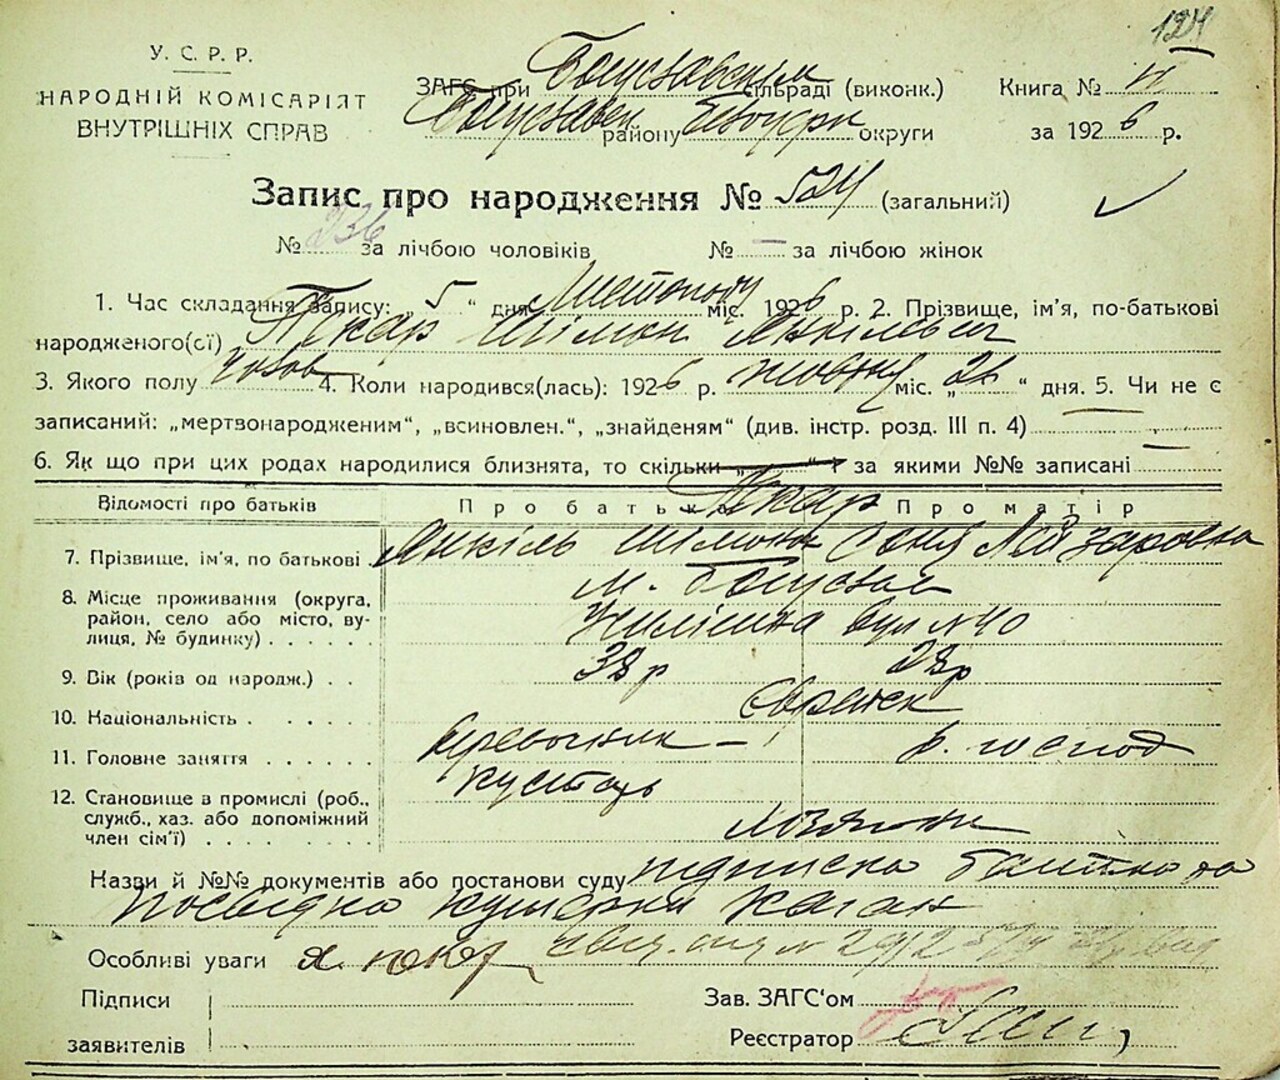 124
У. С. Р. Р.
НАРОДНІЙ КОМІСАРІЯТ
ВНУТРІШНІХ СПРАВ
ЗАГС при Богуславськім сільраді (виконк.) Книга №
Богуславськ району Білоцерк округи за 1926 р.
Запис про народження № 524 (загальний)
№ 236 за лічбою чоловіків № — за лічбою жінок
1. Час складання запису: 5 " дня Листопаду міс. 1926 р. 2. Прізвище, ім'я, по-батькові
народженого(ої) Пекар Шімон Янкільов
3. Якого полу чолов 4. Коли народився(лась): 1926 р. жовтня міс. „26 " дня. 5. Чи не є
записаний: „мертвонародженим", „всиновлен.", „знайденям" (див. інстр. розд. III п. 4) —
6. Як що при цих родах народилися близнята, то скільки „ " і за якими №№ записані —
Відомості про батьків Про батька Про матір
Пекар
7. Прізвище, ім'я, по батькові Янкіль Шімонов Соня Лейзаровна
8. Місце проживання (округа, район, село або місто, вулиця, № будинку) м. Богуслав
вул № 40
9. Вік (років од народж.) 38 р 28 р
10. Національність Єврейск
11. Головне заняття — д. господ
кустарь
12. Становище в промислі (роб., служб., хаз. або допоміжний член сім'ї) хозяин
Назви й №№ документів або постанови суду підписка батька та
посвідка кушерки Каган
Особливі уваги № 2912
Підписи
заявителів
Зав. ЗАГС'ом
Реєстратор